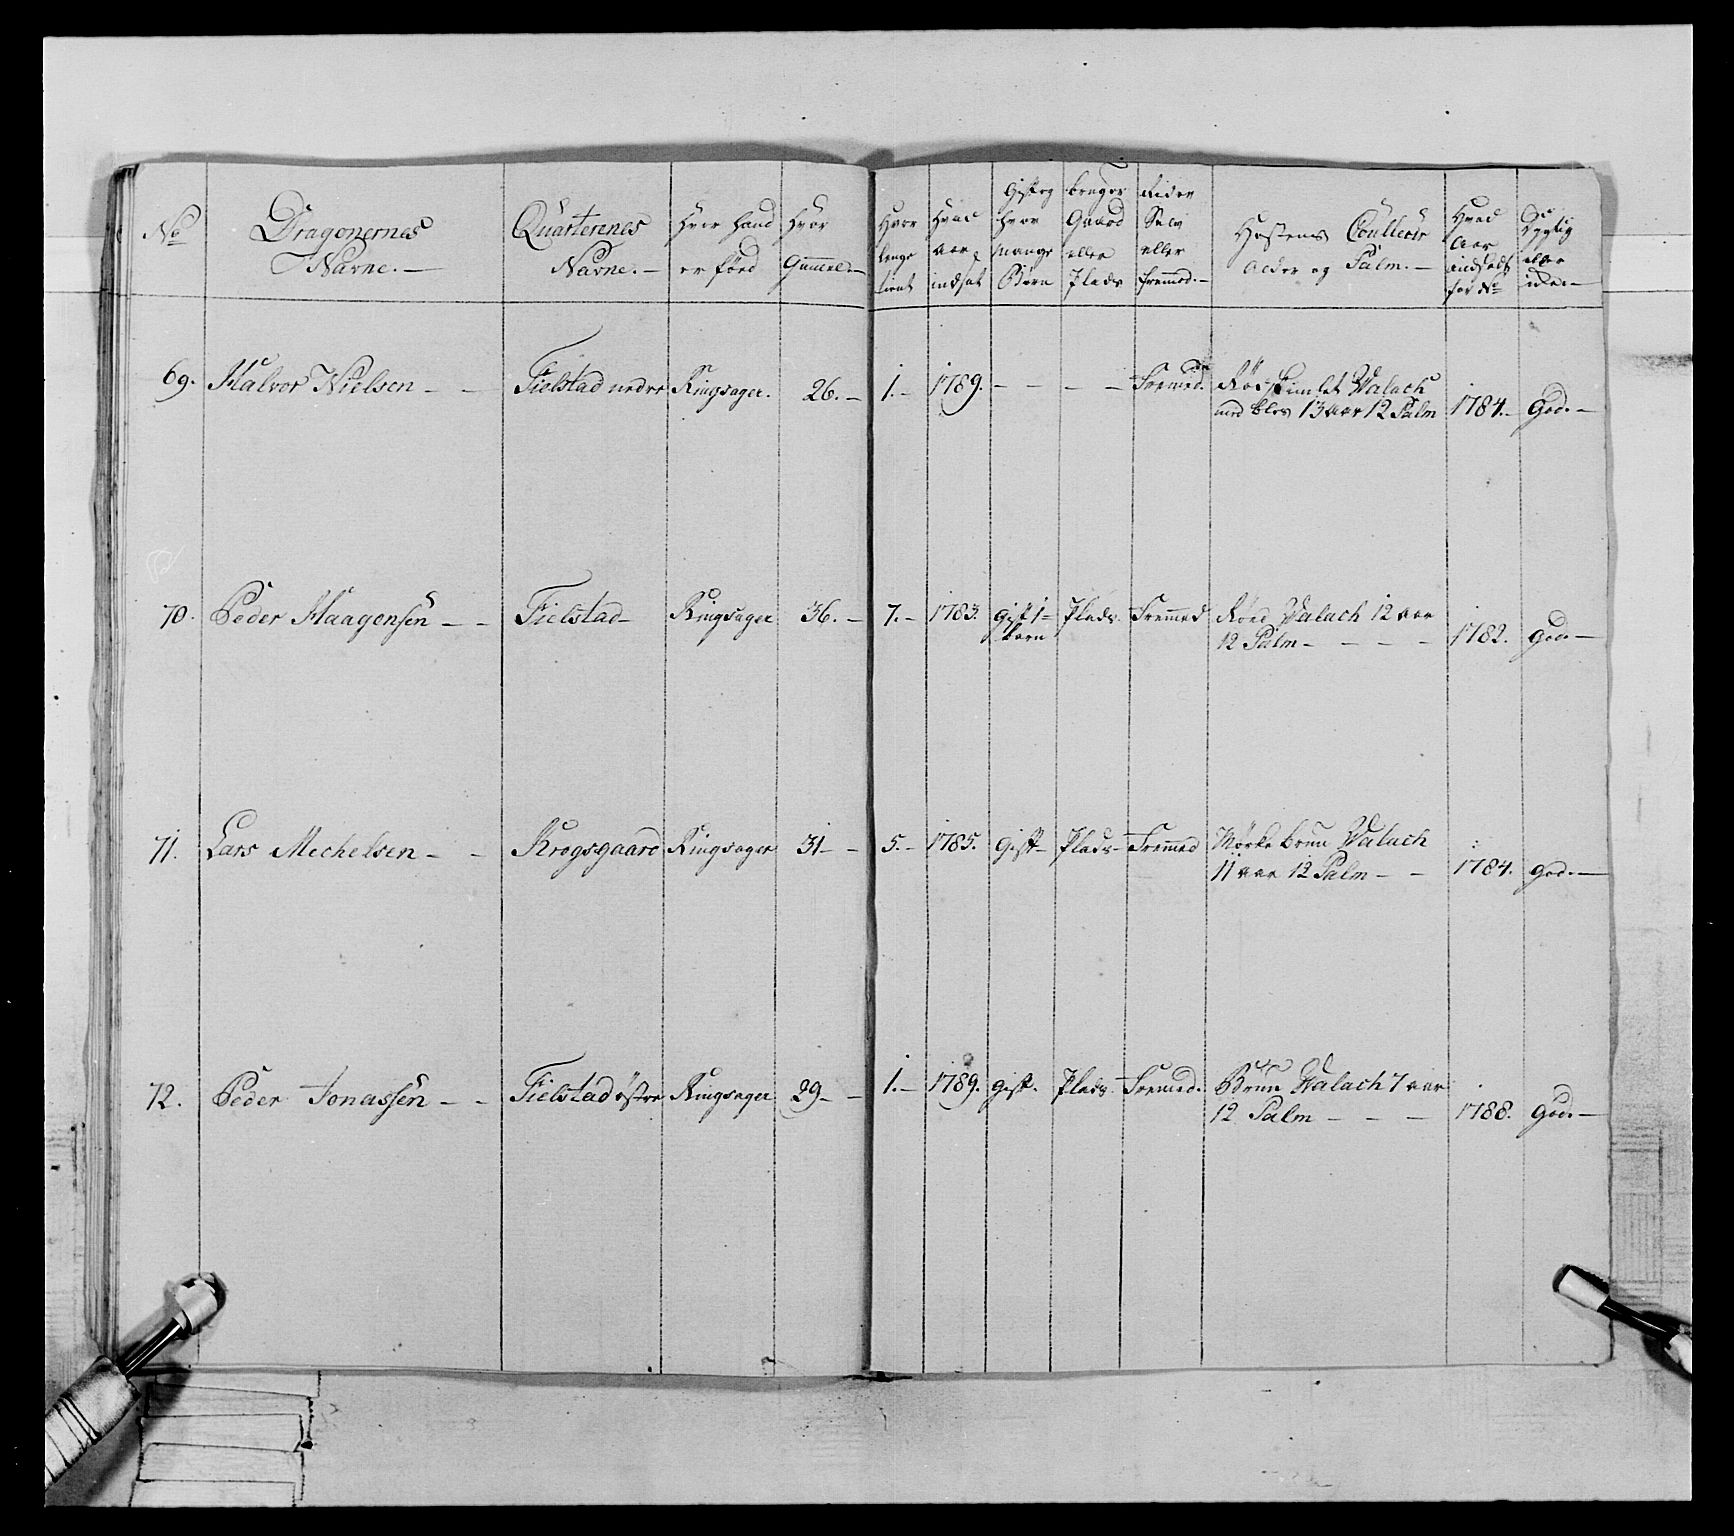 No
Dragonernes
Navne.
Quarterenes
Navne.
Hvor hand
er föed
Hvor
Gammel.
Hvor
lenge
tient
Hvad
aar
indsat
Gift og
hvor
mange
Börn
bruger
Gaard
eller
Plads
Rider
Selv
eller
fremmed.
Hestens Couleur
Alder og Palm.
Hvad
Aar
indsadt
for No
Dygtig
eller
69. Halvor Nielsen Fielstad nedre Ringsager. 26. 1. 1789. Fremed. Röd skimlet Valach
med bles 13 aar 12 Palm 1784. God.
70. Peder Haagensen Fielstad Ringsager 36. 7. 1783. Gift 1
barn
Plads Fremmed Röed Valach 12 aar
12 Palm 1782. god.
71. Lars Mechelsen Krogsgaard Ringsager 31 5. 1785. Gift Plads Fremmed Mörke brun Valach
11 aar 12 Palm 1784. god.
72. Peder Jonassen Fielstad östre Ringsager 29 1. 1789. gift. Plads Fremed. Brun Valach 7 aar
12 Palm 1788. God.